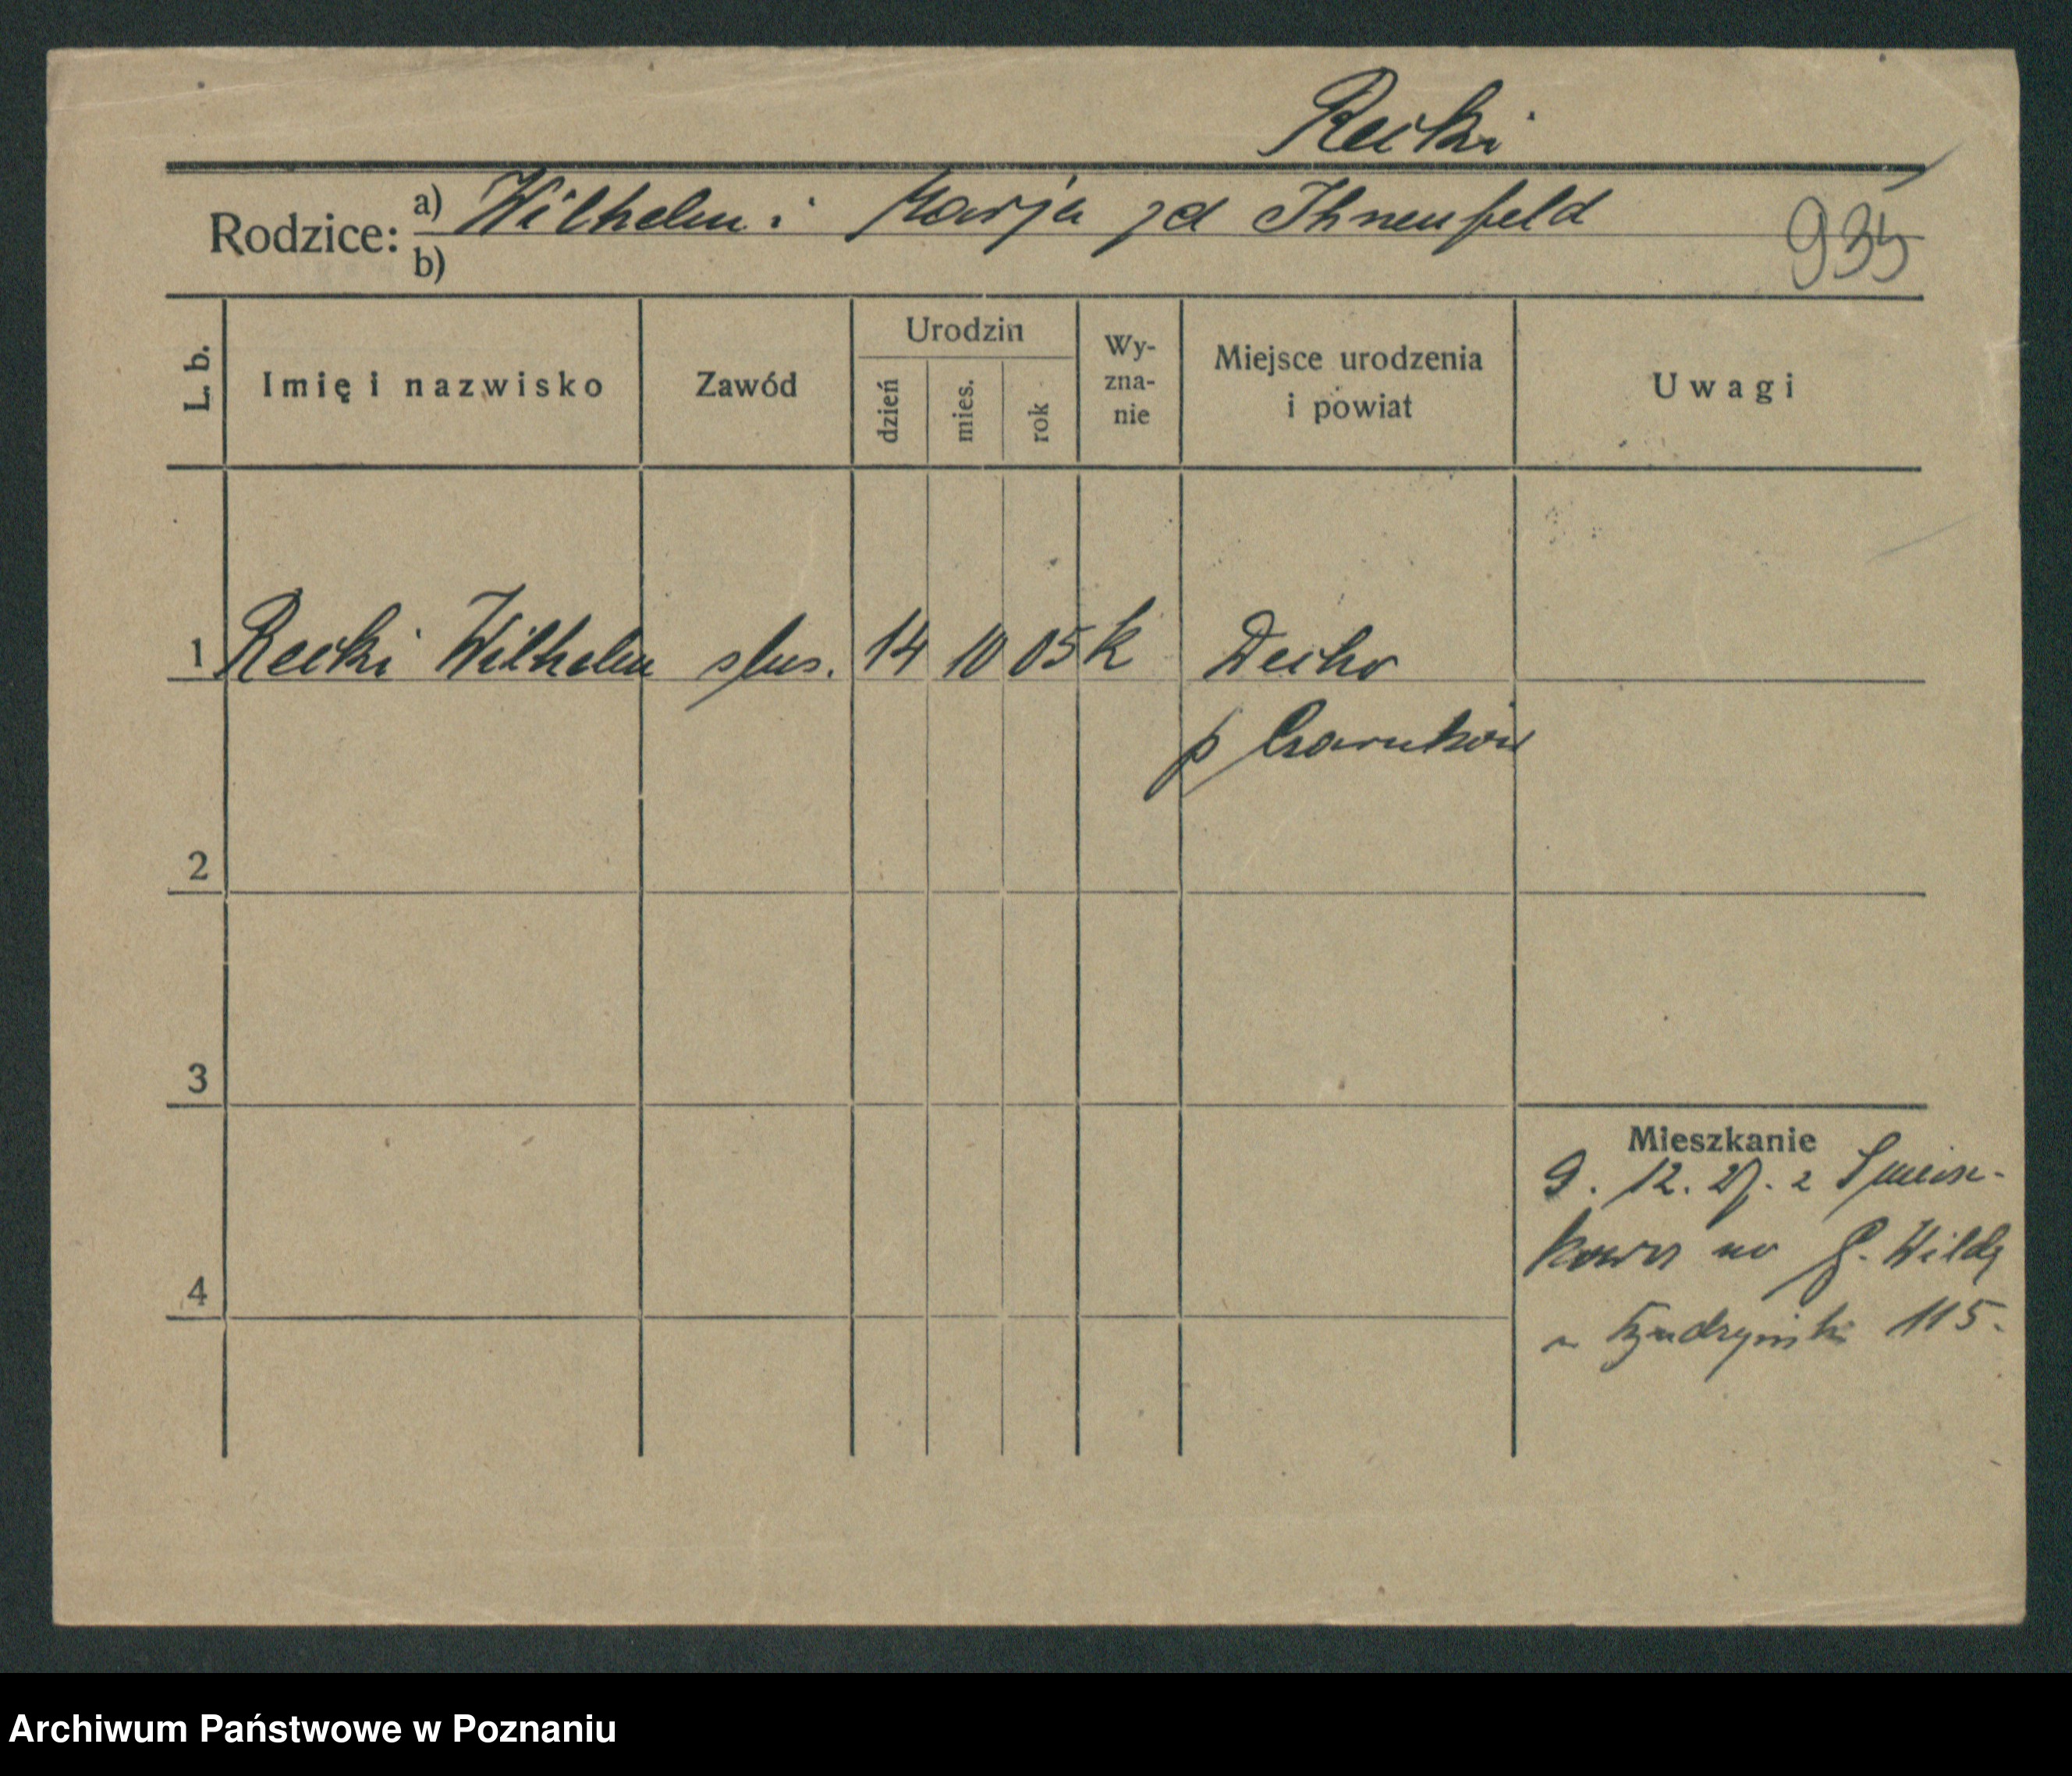 Recki
Rodzice: a) Wilhelm i Marja zd Ihnenfeld
b)
935
L. b. Imię i nazwisko Zawód Urodzin dzień mies. rok Wy-zna-nie Miejsce urodzenia i powiat Uwagi
1 Recki Wilhelm ślus. 14 10 05 k
p Czarnków
2
3
4
Mieszkanie
9. 12. 27. z
na G. Wildę
115.
Archiwum Państwowe w Poznaniu